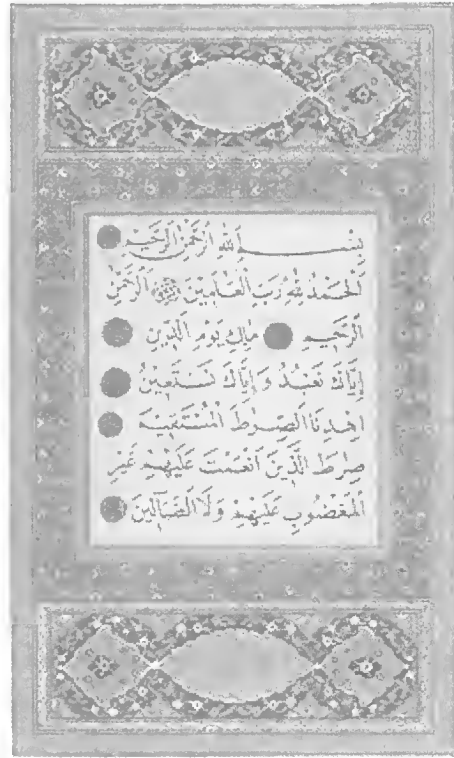 بِسْمِ اللهِ الرَّحْمٰنِ الرَّحِيمِ
اَلْحَمْدُ لِلّٰهِ رَبِّ الْعَالَمِينَ اَلرَّحْمٰنِ
الرَّحِيمِ مَالِكِ يَوْمِ الدِّينِ
اِيَّاكَ نَعْبُدُ وَاِيَّاكَ نَسْتَعِينُ
اِهْدِنَا الصِّرَاطَ الْمُسْتَقِيمَ
صِرَاطَ الَّذِينَ اَنْعَمْتَ عَلَيْهِمْ غَيْرِ
الْمَغْضُوبِ عَلَيْهِمْ وَلَا الضَّآلِّينَ